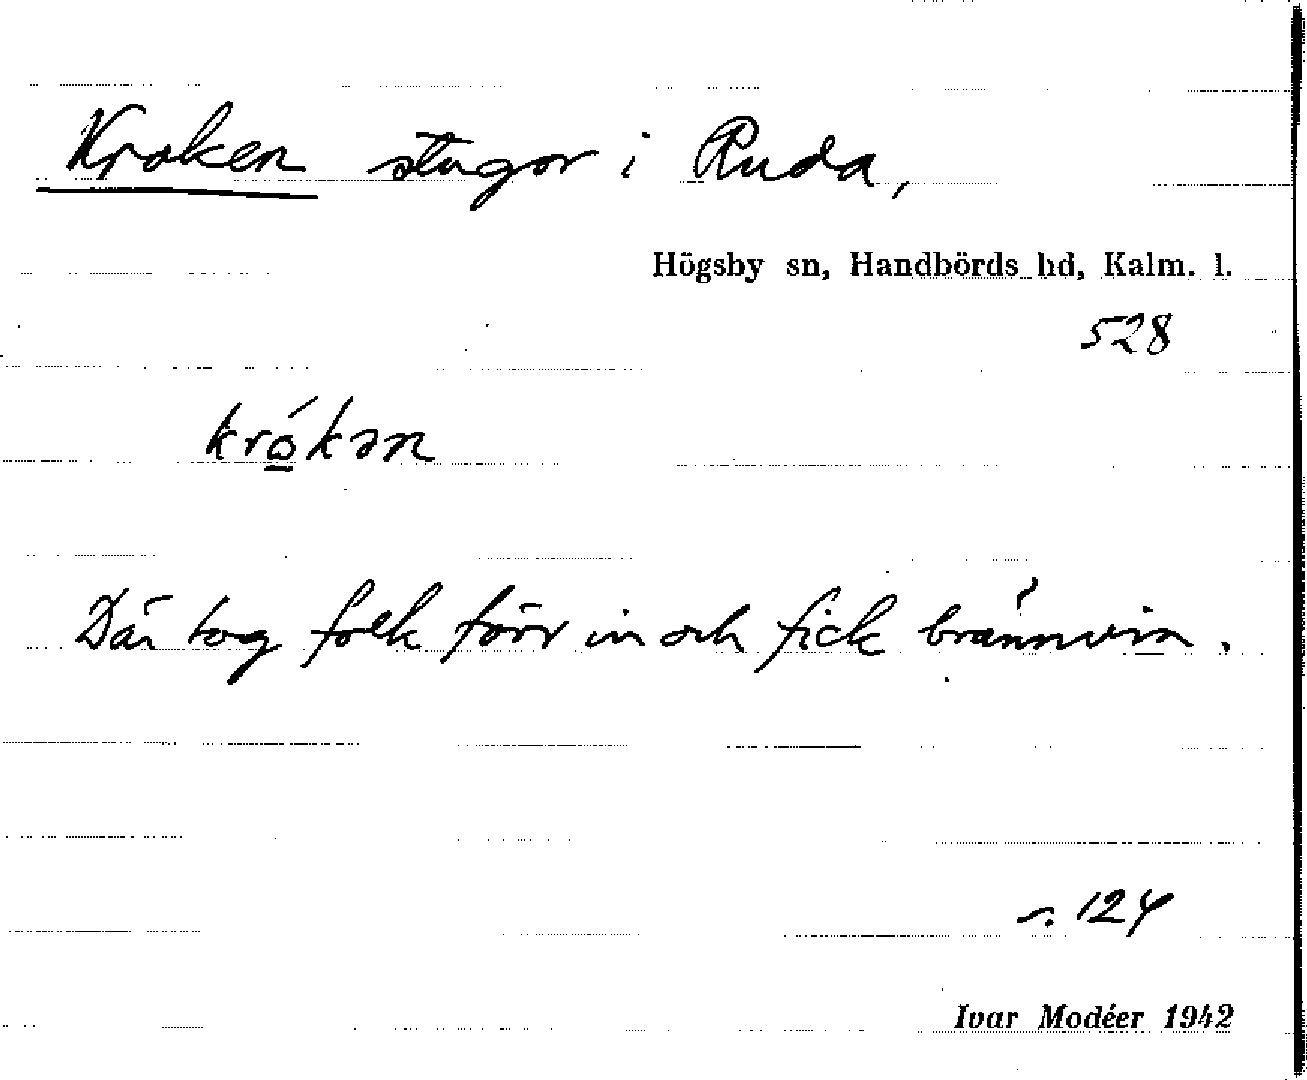 Kroken stugor i Ruda,
Högsby sn, Handbörds hd, Kalm. l.
528
kró̲kən
Där tog folk förr in och fick brännvin.
s. 124
Ivar Modéer 1942